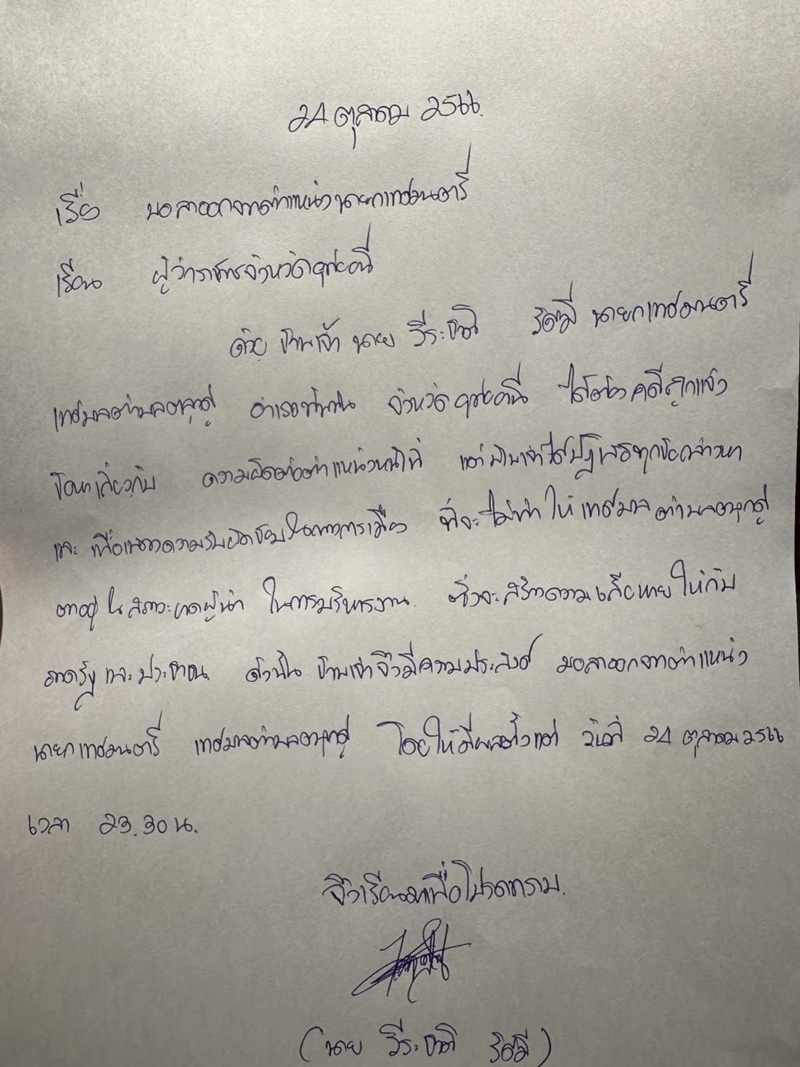 24 ตุลาคม 2566.
เรื่อง ขอลาออกจากตำแหน่งนายกเทศมนตรี
เรียน ผู้ว่าราชการจังหวัดอุทัยธานี
ด้วย ข้าพเจ้า นาย วีระชาติ รัศมี นายกเทศมนตรี
เทศบาลตำบลตลุกดู่ อำเภอทัพทัน จังหวัดอุทัยธานี ได้ต้องคดีถูกแจ้ง
ข้อหาเกี่ยวกับ ความผิดต่อตำแหน่งหน้าที่ แต่ข้าพเจ้าได้ปฏิเสธทุกข้อกล่าวหา
และ เพื่อแสดงความรับผิดชอบในทางการเมือง ที่จะไม่ทำให้ เทศบาลตำบลตลุกดู่
ตกอยู่ใน สภาวะขาดผู้นำ ในการบริหารงาน. ซึ่งจะสร้างความเสียหายให้กับ
ภาครัฐ และประชาชน ดังนั้น ข้าพเจ้าจึงมีความประสงค์ ขอลาออกจากตำแหน่ง
นายกเทศมนตรี เทศบาลตำบลตลุกดู่ โดยให้มีผลตั้งแต่ วันที่ 24 ตุลาคม 2566
เวลา 23.30 น.
จึงเรียนมาเพื่อโปรดทราบ.
(นาย วีระชาติ รัศมี)